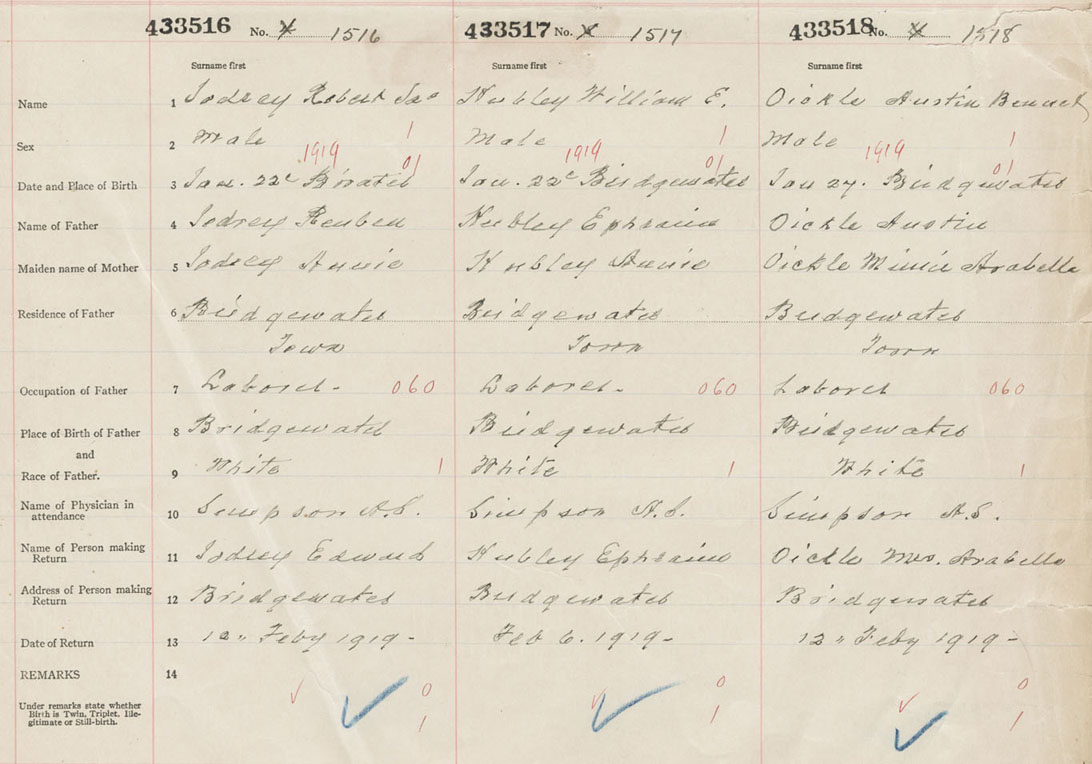 433516 No. 1516 433517 No. 1517 433518 No. 1518
Surname first Surname first Surname first
Name 1 Jodrey Robert Jas Hubley William E. Oickle Austin Bennet
Sex 2 Male 1 Male 1 Male 1
1919 01 1919 01 1919 01
Date and Place of Birth 3 Jan. 22d Bridgewater Jan 27. Bridgewater
Name of Father 4 Jodrey Reuben Hubley Ephraim Oickle Austin
Maiden name of Mother 5 Jodrey Annie Hubley Annie Oickle Minie Arabella
Residence of Father 6 Bridgewater Bridgewater Bridgewater
Town Town Town
Occupation of Father 7 Laborer - 060 Laborer - 060 Laborer 060
Place of Birth of Father 8 Bridgewater Bridgewater Bridgewater
and
Race of Father. 9 White 1 White 1 White 1
Name of Physician in
attendance 10 Simpson A.S. Simpson A.S. Simpson A.S.
Name of Person making
Return 11 Jodrey Edward Hubley Ephraim Oickle Mrs. Arabella
Address of Person making
Return 12 Bridgewater Bridgewater Bridgewater
Date of Return 13 12" Feby 1919 - Feb 6. 1919 - 12" Feby 1919 -
REMARKS 14
0 0 0
Under remarks state whether
Birth is Twin, Triplet, Ille-
gitimate or Still-birth.
1 1 1